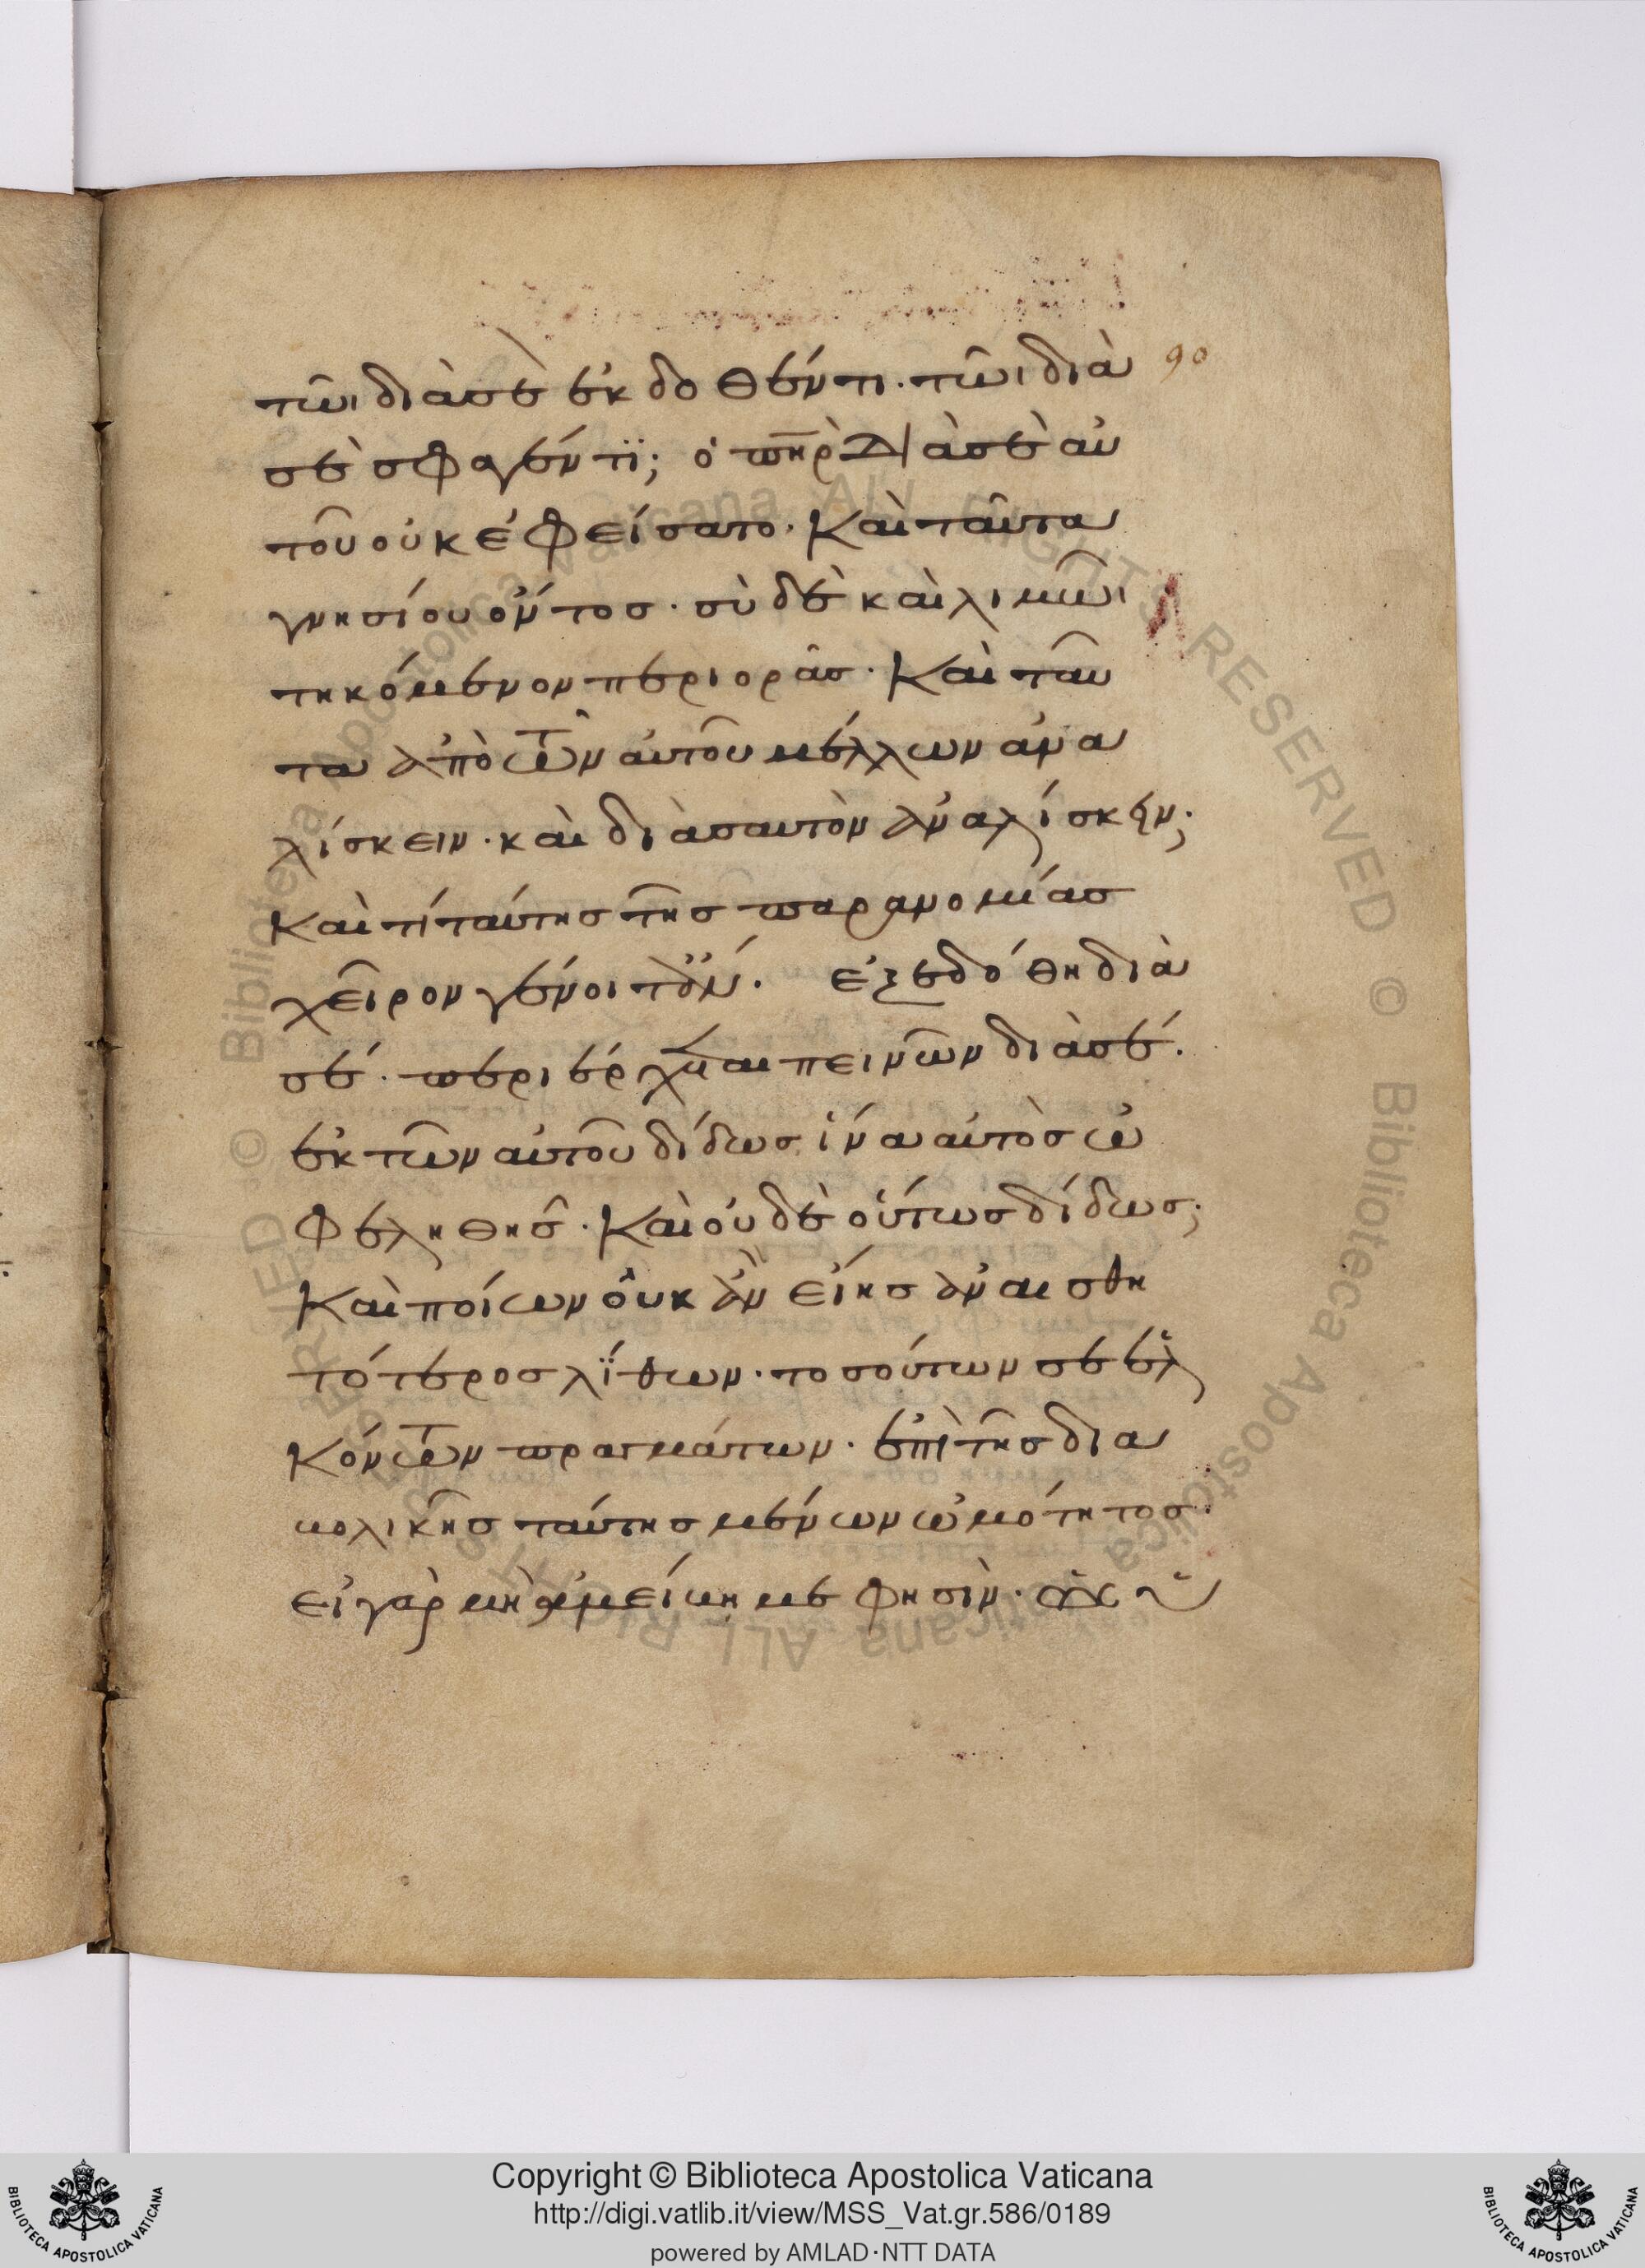 90
τῶι διὰ σὲ ἐκδοθέντι· τῶι διὰ
σὲ σφαγέντϊ; ὁ πηρ διὰ σὲ αυ
τοῦ οὐκ ἐφείσατο· Καὶ ταῦτα
γνησίου ὄντοσ· σὺ δὲ καὶ λιμῶι
τηκόμενον περιορᾶσ· Καὶ ταῦ
τα ἀπὸ τῶν αὐτοῦ μέλλων ἀνα
λίσκειν· καὶ διὰ σαυτὸν ἀναλίσκειν;
Καὶ τί ταύτησ τῆσ παρανομίασ
χεῖρον γένοιτ ἂν. ἐξεδόθη διὰ
σέ· περιέρχεται πεινῶν διὰ σέ.
ἐκ τῶν αὐτοῦ δίδωσ ἵνα αὐτὸσ ὠ
φεληθῆσ· Καὶ οὐδὲ οὕτωσ δίδωσ;
Καὶ ποίων οὐκ ἂν εἴησ ἀναισθη
τότεροσ λΐθων· τοσούτων σε ἑλ
κόντων πραγμάτων· ἐπὶ τῆσ δια
βολικῆσ ταύτησ μένων ὠμότητοσ·
εἰ γὰρ μὴ ἀμείβῃ με φησὶν·
Copyright © Biblioteca Apostolica Vaticana
http://digi.vatlib.it/view/MSS_Vat.gr.586/0189
powered by AMLAD·NTT DATA
BIBLIOTECA APOSTOLICA VATICANA
BIBLIOTECA APOSTOLICA VATICANA